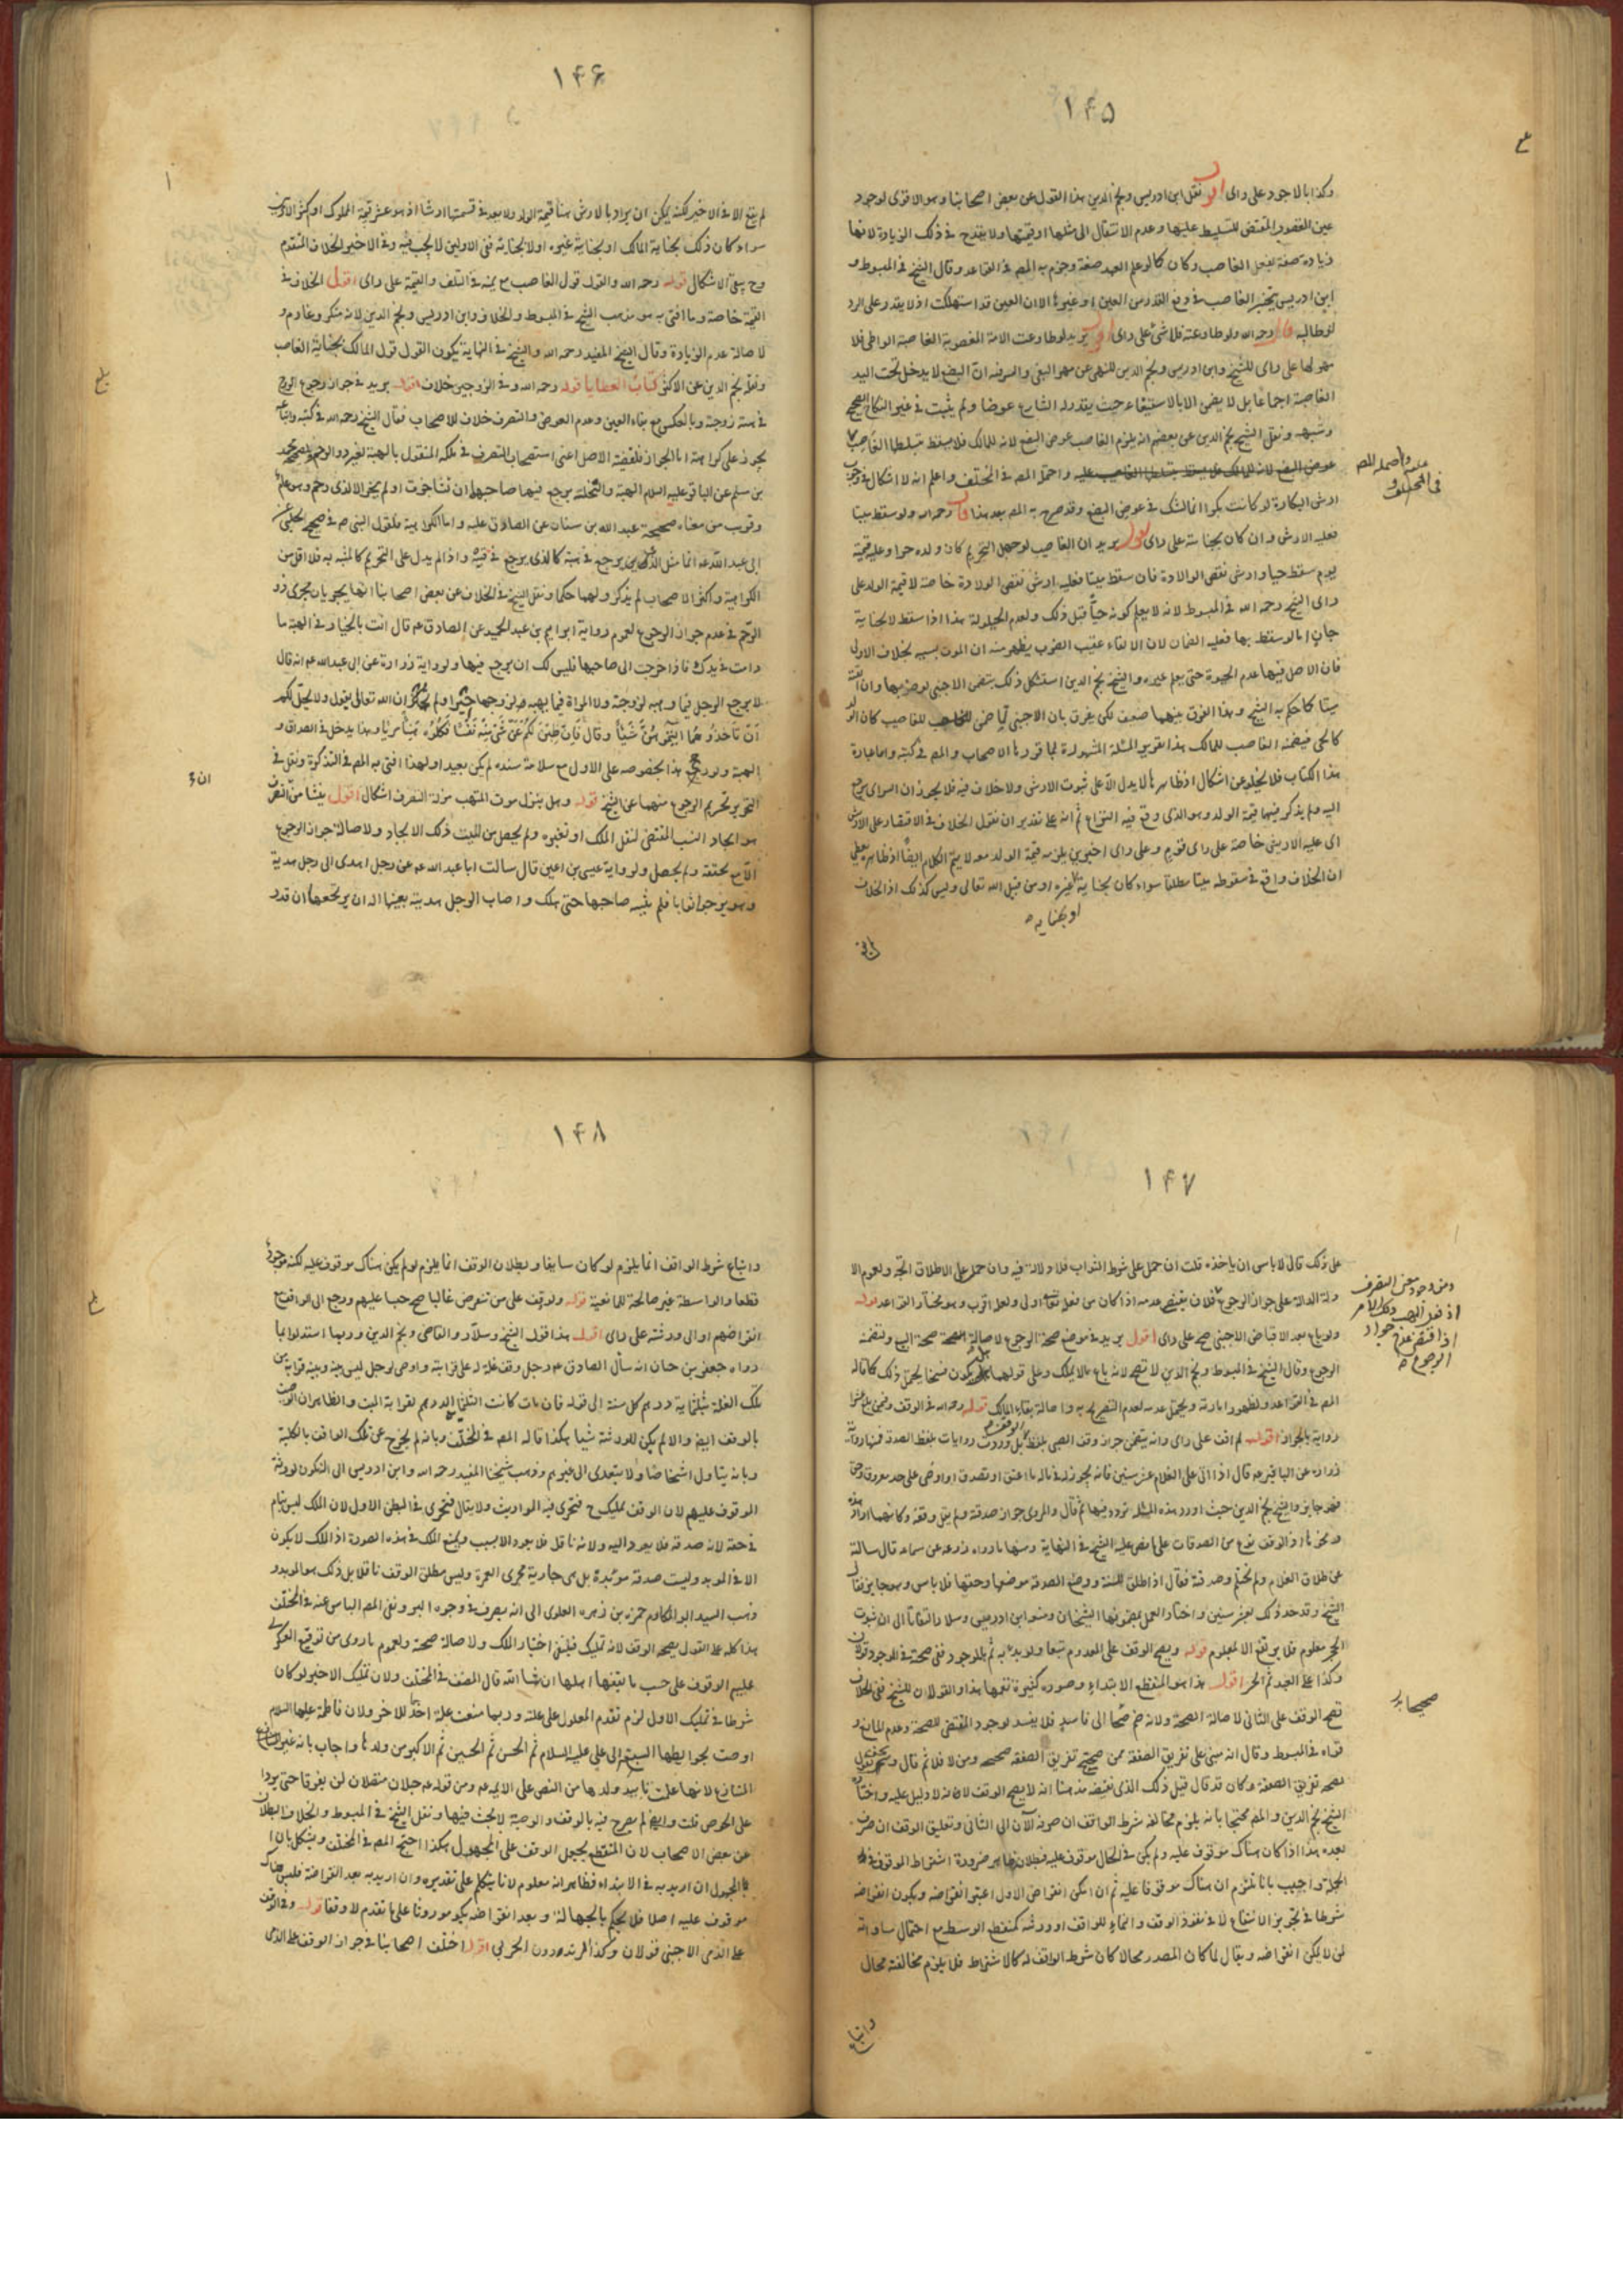 ١۴۵
وكذا بالاجود على راى اقول نقل ابن ادريس ونجم الدين هذا القول عن بعض اصحابنا وهو الاقوى لوجود
عين المغصوب المقتضى للتسليط عليها وعدم الانتقال الى مثلها او قيمتها ولا يقدح فى ذلك الزيادة لانها
زيادة صفة بفعل الغاصب وكان كما لو علم العبد صنعة وجزم به المص فى القواعد وقال الشيخ فى المبسوط و
ابن ادريس يتخير الغاصب فى دفع القدر من العين او غيرها لان العين قد استهلكت اذ لا يقدر على الرد
لو طالبه قال رحمه الله ولو طاوعته فلا شئ على راى اقول يريد لو طاوعت الامة المغصوبة الغاصبة الواطى فلا
مهر لها على راى للشيخ وابن ادريس ونجم الدين للنهى عن مهر البغى والسر فيه ان البضع لا يدخل تحت اليد
الغاصبة اجماعا بل لا يضمن الا بالاستيفاء حيث يقدر له الشارع عوضا ولم يثبت فى غير النكاح الصحيح
وشبهه ونقل الشيخ نجم الدين عن بعضهم انه يلزم الغاصب عوض البضع لانه للمالك فلا يسقط
واحتمله المص فى المختلف واعلم انه لا اشكال فى وجوب
ارش البكارة لو كانت بكرا انما الشك فى عوض البضع وقد صرح به المص بعد هذا قال رحمه الله ولو سقط ميتا
فعليه الارش وان كان بجناية على راى اقول يريد ان الغاصب لو جهل التحريم كان ولده حرا وعليه قيمته
يوم سقط حيا وارش نقص الولادة فان سقط ميتا فعليه ارش نقص الولادة خاصة لا قيمة الولد على
راى الشيخ رحمه الله فى المبسوط لانه لا يعلم كونه حيا قبل ذلك ولعدم الحيلولة هذا اذا سقط لا لجناية
جان اما لو سقط بها فعليه الضمان لان الالقاء عقيب الضرب يظهر منه ان الموت بسببه بخلاف الاولى
فان الاصل فيها عدم الحيوة حتى يعلم غيره والشيخ نجم الدين استشكل ذلك بتضمين الاجنبى لو ضربها وان القته
ميتا كما حكم به الشيخ وهذا الفرق بينهما ضعيف لكن يفرق بان الاجنبى للغاصب كان الولد
كالحى فيضمنه الغاصب للمالك هذا تقرير المسئلة المشهورة كما قررها الاصحاب والمص فى كتبه واما عبارة
هذا الكتاب فلا يخلو عن اشكال اذ ظاهرها لا يدل الا على ثبوت الارش ولا خلاف فيه فلا يجوز ان السراى يرجع
اليه ولم يذكر فيهما قيمة الولد وهو الذى وقع فيه النزاع ثم انه على تقدير ان نقول الخلاف فى الاقتصار على الارش
اى عليه الارش خاصة على راى قوم وعلى راى اخرين يلزمه قيمة الولد معه لا يتم الكلام ايضا اذ ظاهره يعطى
ان الخلاف واقع فى سقوطه ميتا مطلقا سواء كان بجناية غيره او من قبل الله تعالى وليس كذلك اذ الخلاف
او بجنايه
واحتمله المص
فى المختلف
١۴۶
لم يقع الا فى الاخير لكنه يمكن ان يراد بالارش هنا قيمة الولد ولا بعد فى قسمتها ارشا اذ هو عشر قيمة المملوك او
سواء كان ذلك بجناية المالك او بجناية غيره او لا بجناية ففى الاولين لا يجب فيه وفى الاخير الخلاف المتقدم
وح يبقى الاشكال قوله رحمه الله والقول قول الغاصب مع يمينه فى التلف والقيمة على راى اقول الخلاف فى
القيمة خاصة وما افتى به هو مذهب الشيخ فى المبسوط والخلاف وابن ادريس ونجم الدين لانه منكر وغارم و
لاصالة عدم الزيادة وقال الشيخ المفيد رحمه الله والشيخ فى النهاية يكون القول قول المالك لجناية الغاصب
ونقله نجم الدين عن الاكثر كتاب العطايا قوله رحمه الله وفى الزوجين خلاف اقول يريد فى جواز رجوع الزوج
فى هبة زوجته وبالعكس مع بقاء العين وعدم العوض والتصرف خلاف للاصحاب فقال الشيخ رحمه الله فى كتبه واتباعه
يجوز على كراهية اما الجواز فلقضية الاصل اعنى استصحاب التصرف فى ملكه المنقول بالهبة لغير ذو الرحم ولصحيحة محمد
بن مسلم عن الباقر عليه السلام الهبة والنحلة يرجع فيها صاحبها ان شاء حيزت او لم يحز الا لذى رحم
وقريب من معناه صحيحة عبد الله بن سنان عن الصادق عليه واما الكراهية فلقول النبى ص فى صحيح الحلبى عن
ابى عبد الله عم انما مثل الذى يرجع فى هبته كالذى يرجع فى قيئه واذا لم يدل على التحريم كالمشبه به فلا اقل من
الكراهية واكثر الاصحاب لم يذكر ولهما حكما ونقل الشيخ فى الخلاف عن بعض اصحابنا انهما يجريان مجرى ذو
الرحم فى عدم جواز الرجوع لعموم رواية ابراهيم بن عبد الحميد عن الصادق عم قال انت بالخيار فى الهبة ما
دامت فى يدك فاذا خرجت الى صاحبها فليس لك ان يرجع فيها ولرواية زرارة عن ابى عبد الله عم انه قال
لا يرجع الرجل فيما وهبه لزوجته ولا المراة فيما يهبه لزوجها حيز او لم يحز ان الله تعالى يقول ولا يحل لكم
ان تاخذوا مما اتيتموهن شيئا وقال فان طبن لكم عن شئ منه نفسا فكلوه هنيئا مريئا وهذا يدخل فى الصداق و
الهبة ولو رجح هذا لخصوصه على الاول مع سلامة سنده لم يكن بعيدا ولهذا افتى به المص فى التذكرة ونقل فى
التحرير تحريم الرجوع منهما عن الشيخ قوله وهل ينزل موت المتهب منزلة التصرف اشكال اقول ينشا من التصرف
هو ايجاد السبب المقتضى لنقل الملك او تغيره ولم يحصل من الميت ذلك الايجاد ولاصالة جواز الرجوع
الا مع تحققه ولم يحصل ولرواية عيسى بن اعين قال سالت ابا عبد الله عم عن رجل اهدى الى رجل هدية
وهو يرجو ثوابا فلم يثبه صاحبها حتى هلك واصاب الرجل هديته بعينها اله ان يرتجعها ان قدر
١۴٧
على ذلك قال لا باس ان ياخذه قلت ان حمل على شرط الثواب فلا دلالة فيه وان حمل على الاطلاق اتجه ولعموم الا
دلة الدالة على جواز الرجوع فلان بغيض عدمه اذا كان من فعل الله تعالى اولى ولعل اقرب وهو مختار القواعد قوله
ولو باع بعد الاقباض الاجنبى صح على راى اقول يريد فى موضع صحة الرجوع لاصالة الصحة صحة البيع ولتضمنه
الرجوع وقال الشيخ فى المبسوط ونجم الدين لا تصح لانه باع ما لا يملك وعلى قولهما هل يكون فسخا يحتمل ذلك كما قاله
المص فى القواعد ولظهور ارادته ويحتمل عدمه لعدم التصريح به واصالة بقاء المالك قوله رحمه الله فى الوقف وفى من بلغ عشرا
رواية بالجواز اقول لم اقف على راى وانه يتضمن جواز وقف الصبى بلفظ الوقف بل وردت روايات بلفظ الصدقة فمنها رواية
زرارة عن الباقر عم قال اذا اتى على الغلام عشر سنين فانه يجوز له فى ماله ما اعتق او تصدق او اوصى على حد معروف وحق
فهو جايز والشيخ نجم الدين حيث اورد هذه المسئلة تردد فيها ثم قال والمروى جواز صدقته ولم يقل وقفه وكانهما ارادا
نحوها اذ الوقف نوع من الصدقات على ما نص عليه الشيخ فى النهاية ومنها ما رواه زرعه عن سماعه قال سالته
عن طلاق الغلام ولم يحتلم وصدقته فقال اذا طلق للسنة ووضع الصدقة موضعها وحقها فلا باس وهو جايز فقال
الشيخ وقد حد ذلك بعشر سنين واختار العمل بمضمونها الشيخان ومنع ابن ادريس وسلار التفاتا الى ان ثبوت
الحجر معلوم فلا يرتفع الا بمعلوم قوله ويصح الوقف على المعدوم تبعا ولو بدء به ثم بالموجود ففى صحته فى الموجود قولان
وكذا على العبد ثم الحر اقول هذا هو المنقطع الابتداء وصوره كثيرة تعمها هذا والقولان للشيخ ففى الخلاف
تصح الوقف على الثانى لاصالة الصحة ولانه ضم صحيحا الى فاسد فلا يفسد لوجود المقتضى للصحة وعدم المانع و
قواه فى المبسوط وقال انه مبنى على تفريق الصفقة فمن صحح تفريق الصفقة صححه ومن لا فلا ثم قال
بصحة تفريق الصفقة وكان قد قال قبل ذلك الذى يقتضيه مذهبنا انه لا يصح الوقف لانه لا دليل عليه واختاره
الشيخ نجم الدين والمص محتجا بانه يلزم مخالفة شرط الواقف ان صرفه الان الى الثانى وتعليق الوقف ان صرف
بعده هذا اذا كان هناك موقوف عليه ولم يكن فى الحال موقوف عليه فبطلانه ظاهر ضرورة اشتراط الموقوف عليه فى
الجملة واجيب بانا نلتزم ان هناك موقوفا عليه ثم ان امكن انقراض الاول اعتبر انقراضه ويكون انقراضه
شرطا فى تجويز الانتفاع لا فى نفوذ الوقف والنماء للواقف او ورثته كمنقطع الوسط مع احتمال مساواته
لمن لا يمكن انقراضه ويقال لما كان المصدر محالا كان شرط الواقف له كالاشتراط فلا يلزم مخالفته محال
الرجوع
واتباع
١۴٨
واتباع شرط الواقف انما يلزم لو كان سايغا وبطلان الوقف انما يلزم لو لم يكن هناك موقوف عليه لكنه موجود
قطعا والواسطة غير صالحة للمانعية قوله ولو وقف على من ينقرض غالبا صح حبسا عليهم ورجع الى الواقف مع
انقراضهم او الى ورثته على راى اقول هذا قول الشيخ وسلار والقاضى ونجم الدين وربما استدلوا بما
رواه جعفر بن حنان انه سأل الصادق عم رجل وقف غلة له على قرابته واوصى لرجل ليس بينه وبينه قرابة من
تلك الغلة بثلثماية درهم كل سنة الى قوله فان مات كانت الثلثماية درهم لقرابة الميت والظاهر ان الوصية
بالوقف ايضا والا لم يكن للورثة شيئا هكذا قاله المص فى المختلف وبانه لم يخرج عن ملك الواقف بالكلية
وبانه يتناول اشخاصا ولا يتعدى الى غيرهم وذهب شيخنا المفيد رحمه الله وابن ادريس الى انه يكون لورثة
الموقوف عليهم لان الوقف تمليك ح فيجرى فيه المواريث ولا يقال فيجرى فى البطن الاول لان الملك ليس بتام
فى حقه لانه صدقة فلا يعود اليه ولانه ناقل فلا يعود الا بسبب ويمنع الملك فى هذه الصورة اذ الملك لا يكون
الا فى الموبد وليست صدقة مؤبدة بل هى جارية مجرى العمرى وليس مطلق الوقف ناقلا بل ذلك هو الموبد و
ذهب السيد ابو المكارم حمزه بن زهره العلوى الى انه يصرف فى وجوه البر ونفى المص الباس عنه فى المختلف
هذا كله على القول بصحة الوقف لانه تمليك فيلغى اختيار الملك ولاصالة صحته ولعموم ما روى من توقيع العسكرى
عليهم الوقوف على حسب ما يقفها اهلها ان شا الله قال المصنف فى المختلف ولان تمليك الاخير لو كان
شرطا فى تمليك الاول لزم تقدم المعلول على علته وربما منعت علية احدهما للاخر ولان فاطمة عليها السلام
اوصت بحوايطها السبعة الى على عليه السلام ثم الحسن ثم الحسين ثم الاكبر من ولدها واجاب بانه غير محل
النزاع لانها علمت تابيد ولدها من النص على الايمه عم ومن قوله عم حبلان متصلان لن يفترقا حتى يردا
على الحوض قلت وايضا لم يصرح فيه بالوقف والوصية لا بحث فيها ونقل الشيخ فى المبسوط والخلاف البطلان
عن بعض الاصحاب لان المنقطع يحيل الوقف على المجهول هكذا احتج المص فى المختلف ويشكل بان
المجهول ان اريد به فى الابتداء فظاهر انه معلوم لانا نتكلم على تقديره وان اريد به بعد انقراضه فليس هناك
موقوف عليه اصلا فلا يحكم بالجهالة وبعد انقراضه يكون موروثا على ما تقدم لا وقفا قوله وفى الوقف
على الذمى الاجنبى قولان وكذا المرتد دون الحربى اقول اختلف اصحابنا فى جواز الوقف على الذمى